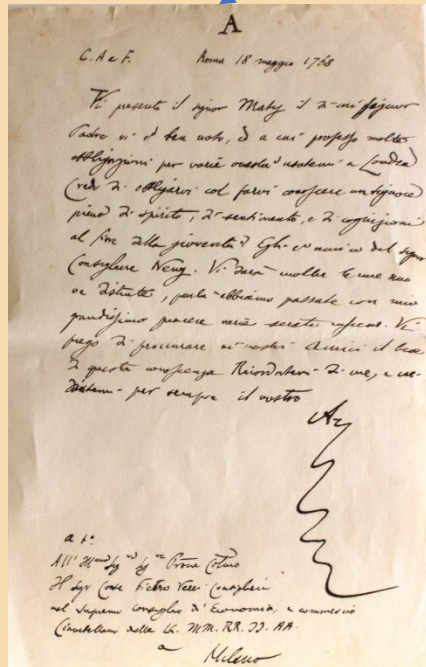 A
C. A e F. Roma 18 maggio 1768
Vi presento il signor Maty il di cui signor
Padre vi è ben noto, e a cui professo molte
obbligazioni per varie onestà usatemi a Londra
Credo di obbligarvi col farvi conoscere un signore
pieno di spirito, di sentimento, e di cognizioni
al fiore della gioventù. Egli è amico del signor
Consigliere Neny. Vi darà molte mie nuo
ve distinte, perché abbiamo passate con mio
grandissimo piacere varie serate insieme. Vi
prego di procurare ai nostri Amici il bene
di questa conoscenza Ricordatevi di me, e cre-
detemi per sempre il vostro
a t.
All' Sig Prone
Il Sigr Conte Pietro Verri Consigliere
nel supremo consiglio d'Economia, e commercio
Ciambellano delle LL. MM. RR. II. AA.
a Milano